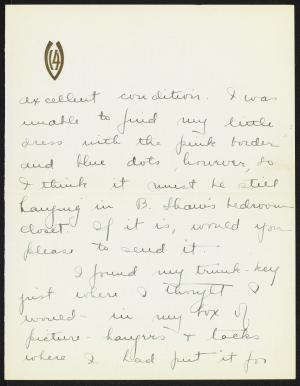 excellent condition. I was
unable to find my little
dress with the pink border
and blue dots, however, so
I think it must be still
hanging in B. Shaw's bedroom
closet. If it is, would you
please to send it.
I found my trunk-key
just where I thought I
would - in my box of
picture-hangers & tacks
where I had put it for